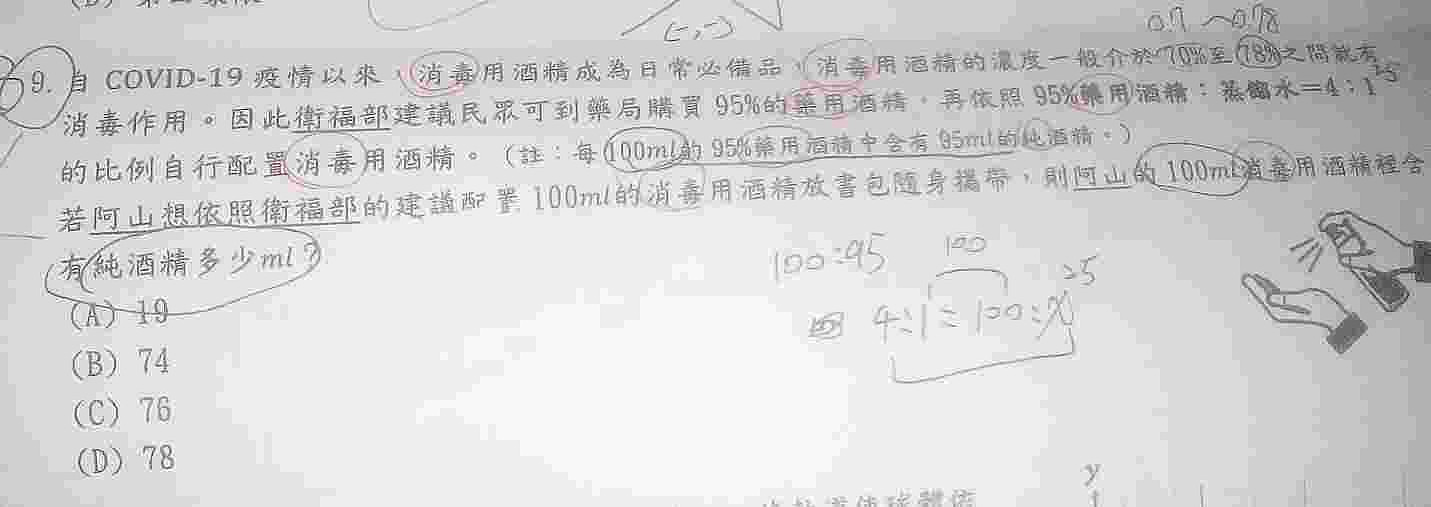 (-,-)
0.7 ~0.78
9. 自 COVID-19 疫情以來,消毒用酒精成為日常必備品,消毒用酒精的濃度一般介於 70%至 78%之間就有
25
消毒作用。因此衛福部建議民眾可到藥局購買 95%的藥用酒精,再依照 95%藥用酒精:蒸餾水=4:1
的比例自行配置消毒用酒精。(註:每 100ml的 95%藥用酒精中含有 95ml的純酒精。)
若阿山想依照衛福部的建議配置 100ml的消毒用酒精放書包隨身攜帶,則阿山的 100ml消毒用酒精裡含
有純酒精多少ml?
100:95
100
25
4:1=100:x
(A) 19
(B) 74
(C) 76
(D) 78
y